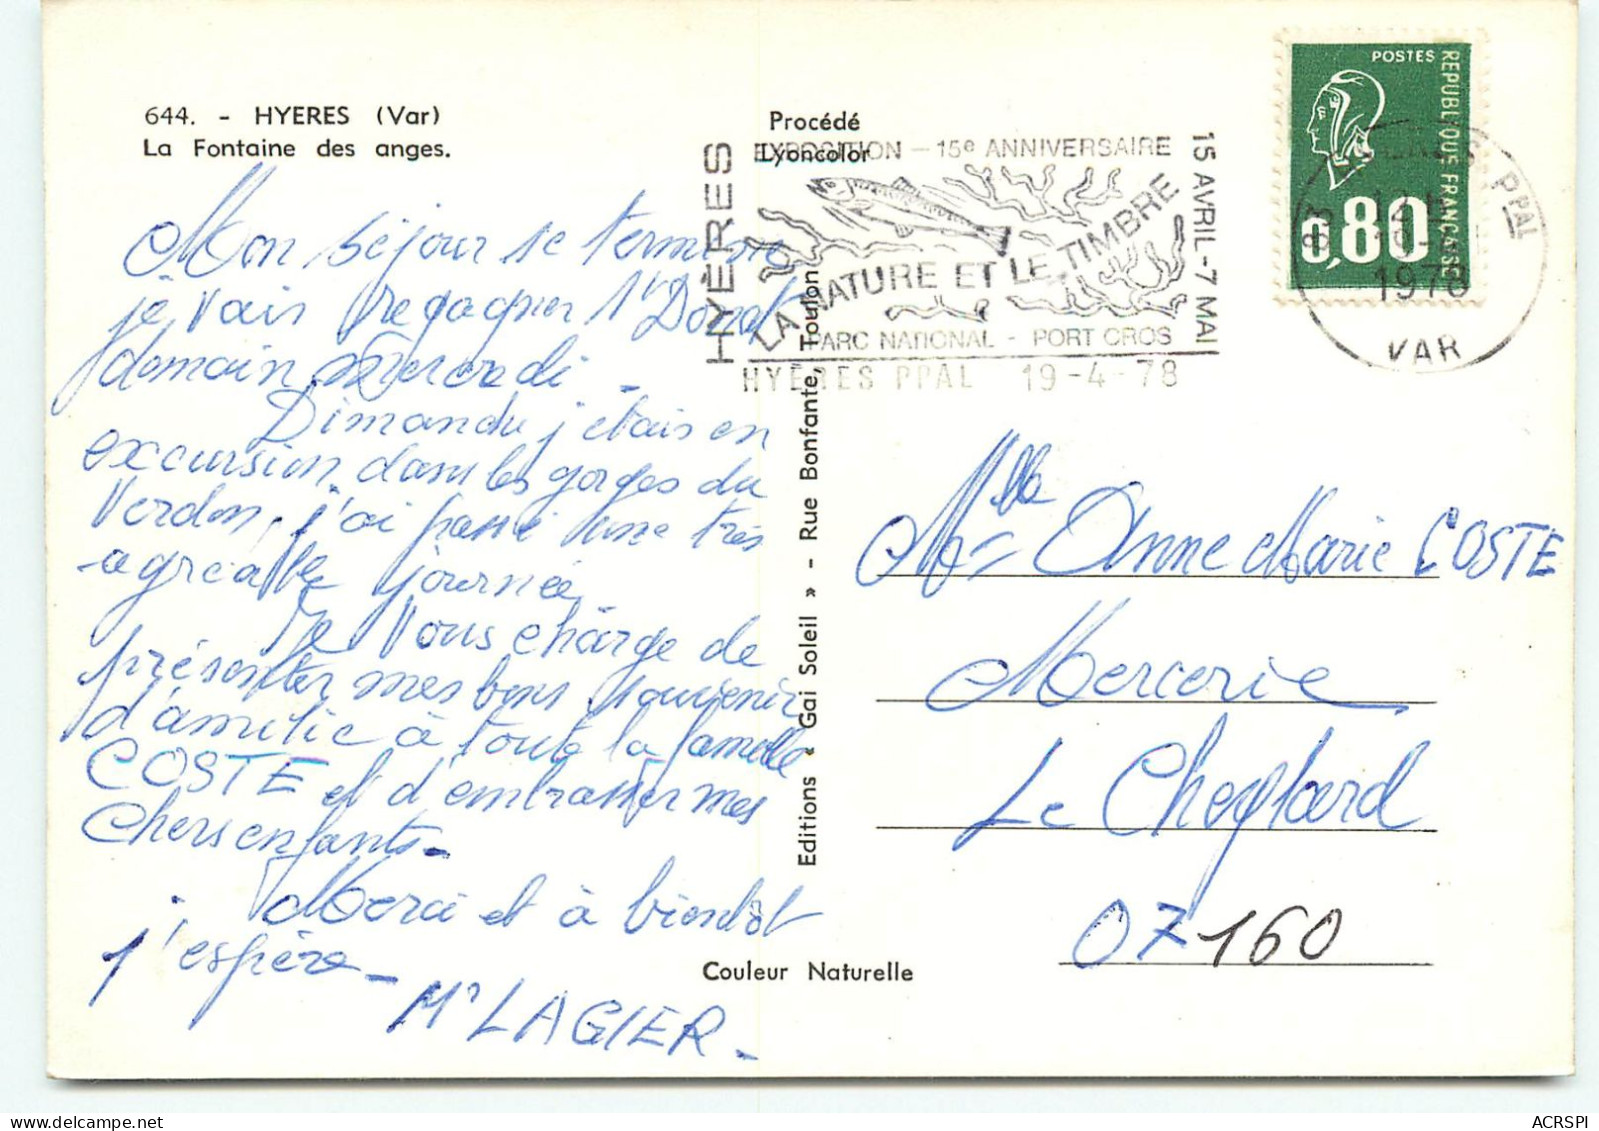 644. - HYERES (Var)
La Fontaine des anges.
Procédé
Lyoncolor
Mon séjour se termine
je vais regagner
domain Mercredi -
Dimandu j'étais en
excursion dans les gorges du
Verdon, j'ai passé une très
agréable journée
Je vous charge de
présenter mes bons souvenir
d'amitié à toute la famille
COSTE et d'embrasser mes
Chers enfants -
Merci et à bientôt
j'espère -
Mr LAGIER -
Editions « Gai Soleil » - Rue Bonfante, Toulon
Couleur Naturelle
HYÈRES
EXPOSITION - 15e ANNIVERSAIRE
LA NATURE ET LE TIMBRE
PARC NATIONAL - PORT CROS
15 AVRIL - 7 MAI
HYERES PPAL 19-4-78
POSTES
REPUBLIQUE FRANÇAISE
0,80
83 HYERES PPAL
1978
VAR
Mlle
Anne Marie COSTE
Mercerie
Le Cheylard
07160
ACRSPI